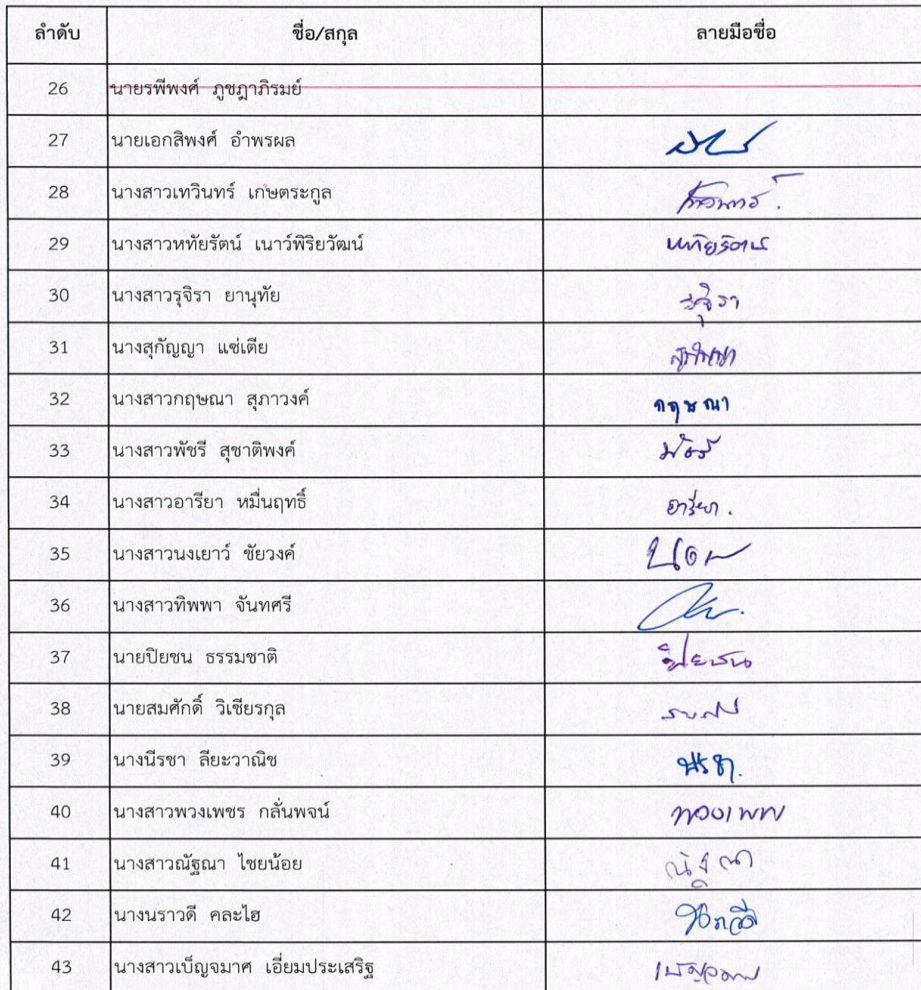 ลำดับ ชื่อ/สกุล ลายมือชื่อ
26 นายรพีพงศ์ ภูชฎาภิรมย์
27 นายเอกสิพงศ์ อำพรผล
28 นางสาวเทวินทร์ เกษตระกูล
29 นางสาวหทัยรัตน์ เนาว์พิริยวัฒน์ หทัยรัตน์
30 นางสาวรุจิรา ยานุทัย รุจิรา
31 นางสุกัญญา แซ่เตีย
32 นางสาวกฤษณา สุภาวงค์ กฤษณา
33 นางสาวพัชรี สุชาติพงค์
34 นางสาวอารียา หมื่นฤทธิ์ อารียา.
35 นางสาวนงเยาว์ ชัยวงค์
36 นางสาวทิพพา จันทศรี
37 นายปิยชน ธรรมชาติ ปิยชน
38 นายสมศักดิ์ วิเชียรกุล
39 นางนีรชา ลียะวาณิช
40 นางสาวพวงเพชร กลั่นพจน์
41 นางสาวณัฐณา ไชยน้อย ณัฐณา
42 นางนราวดี คละไฮ
43 นางสาวเบ็ญจมาศ เอี่ยมประเสริฐ